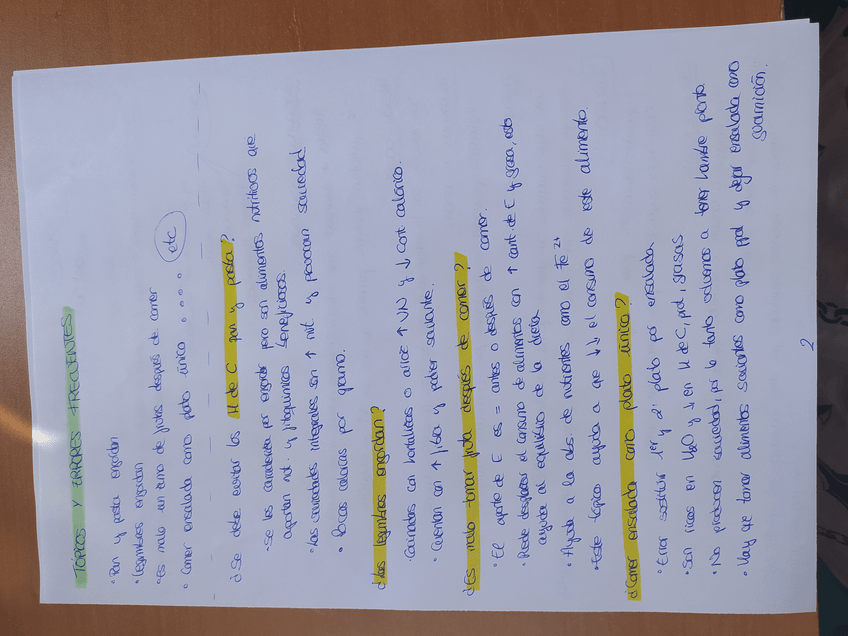 TÓPICOS Y ERRORES FRECUENTES
• Pan y pasta engordan
• Legumbres engordan
• Es malo un sumo de frutas después de comer
• Comer ensalada como plato único .... etc
¿Se debe evitar los H de C pan y pasta?
• Se les caracteriza por engordar pero son alimentos nutritivos que
aportan nut. y fitoquímicos beneficiosos
• Las variedades integrales son ↑ nut. y provocan saciedad
• Pocas calorías por gramo.
¿Las legumbres engordan?
• Cocinadas con hortalizas o arroz ↑ VN y ↓ cont calórico.
• Cuentan con ↑ fibra y poder saciante.
¿Es malo tomar fruta después de comer?
• El aporte de E es = antes o después de comer.
• Puede desplazar el consumo de alimentos con ↑ cant. de E y grasa, esto
ayuda al equilibrio de la dieta
• Ayuda a la abs. de nutrientes como el Fe²⁺
• Este tópico ayuda a que ↓↓ el consumo de este alimento.
¿Comer ensalada como plato único?
• Error sustituir 1er y 2º plato por ensalada
• Son ricas en H₂O y ↓ en H de C, prot, grasas
• No producen saciedad, por lo tanto volvemos a tener hambre pronto
• Hay que tomar alimentos saciantes como plato ppal y dejar ensalada como
guarnición.
2